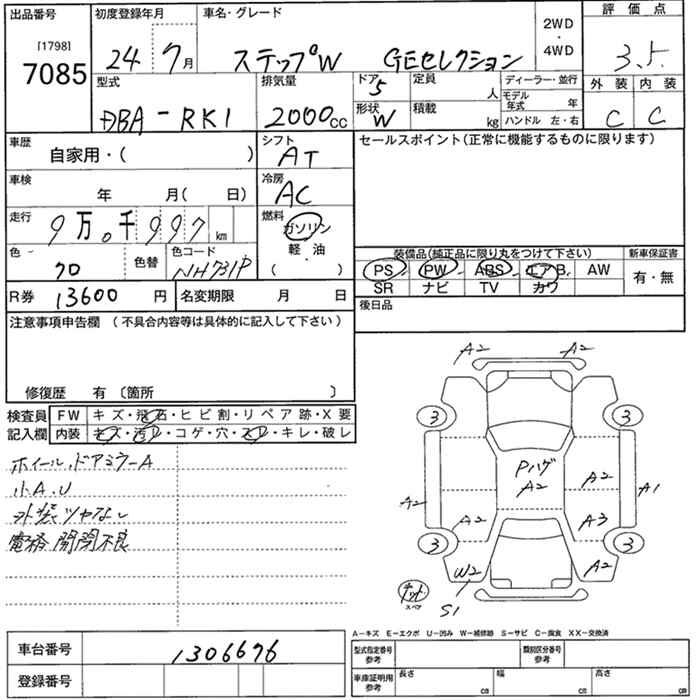 出品番号
[1798]
7085
初度登録年月
24 7月
車名・グレード
ステップW GEセレクション
2WD
・
4WD
評価点
3.5
外装 内装
C C
型式
DBA-RK1
排気量
2000cc
ドア
5
形状
W
定員
人
積載
kg
ディーラー・並行
モデル年式 年
ハンドル 左・右
車歴
自家用・( )
車検
年 月( 日)
走行
9万0千997km
色
クロ
色替
色コード
NH731P
シフト
AT
冷房
AC
燃料
ガソリン
軽・油
( ・ )
R券 13600円
名変期限 月 日
セールスポイント(正常に機能するものに限ります)
装備品(純正品に限り丸をつけて下さい)
PS PW ABS エアB. AW
SR ナビ TV カワ
新車保証書
有・無
後日品
注意事項申告欄 (不具合内容等は具体的に記入して下さい)
修復歴 有〔箇所 〕
検査員記入欄
FW キズ・飛石・ヒビ割・リペア跡・X要
内装 キズ・汚レ・コゲ・穴・スレ・キレ・破レ
ホイール、ドアミラーA
小A.U
外装ツヤなし
電格 開閉不良
A2 A2
3 3
Pハゲ
A2
A2
A2
A1
A2
A3
3 3
W2
A2
スペア
S1
A-キズ E-エクボ U-凹み W-補修跡 S-サビ C-腐食 XX-交換済
車台番号 1306676
登録番号
型式指定番号
参考
類別区分番号
参考
車庫証明用
参考
長さ cm
幅 cm
高さ cm